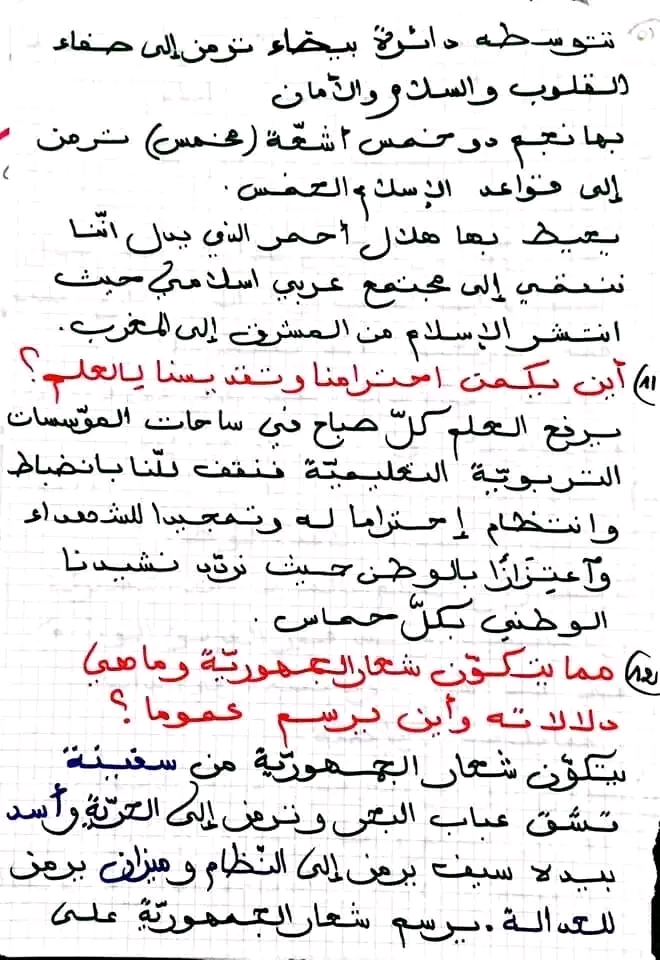 تتوسطه دائرة بيضاء ترمز إلى صفاء
القلوب والسلام والأمان
بها نجم ذو خمس أشعّة (مخمس) ترمز
إلى قواعد الإسلام الخمس.
يحيط بها هلال أحمر الذي يدل أنّنا
ننتمي إلى مجتمع عربي اسلامي حيث
انتشر الإسلام من المشرق إلى المغرب.
11) أين يكمن احترامنا وتقديسنا بالعلم؟
يرفع العلم كلّ صباح في ساحات المؤسسات
التربويّة التعليميّة فنقف كلّنا بانضباط
وانتظام إحتراما له وتمجيدا للشهداء
وآعتِزازًا بالوطن حيث نردّد نشيدنا
الوطني بكلّ حماس.
12) مما يتكوّن شعار الجمهوريّة وماهي
دلالاته وأين يرسم عموما؟
يتكوّن شعار الجمهوريّة من سفينة
تشق عباب البحر وترمز إلى الحرّيّة وأسد
بيده سيف يرمز إلى النّظام وميزان يرمز
للعدالة. يرسم شعار الجمهوريّة على